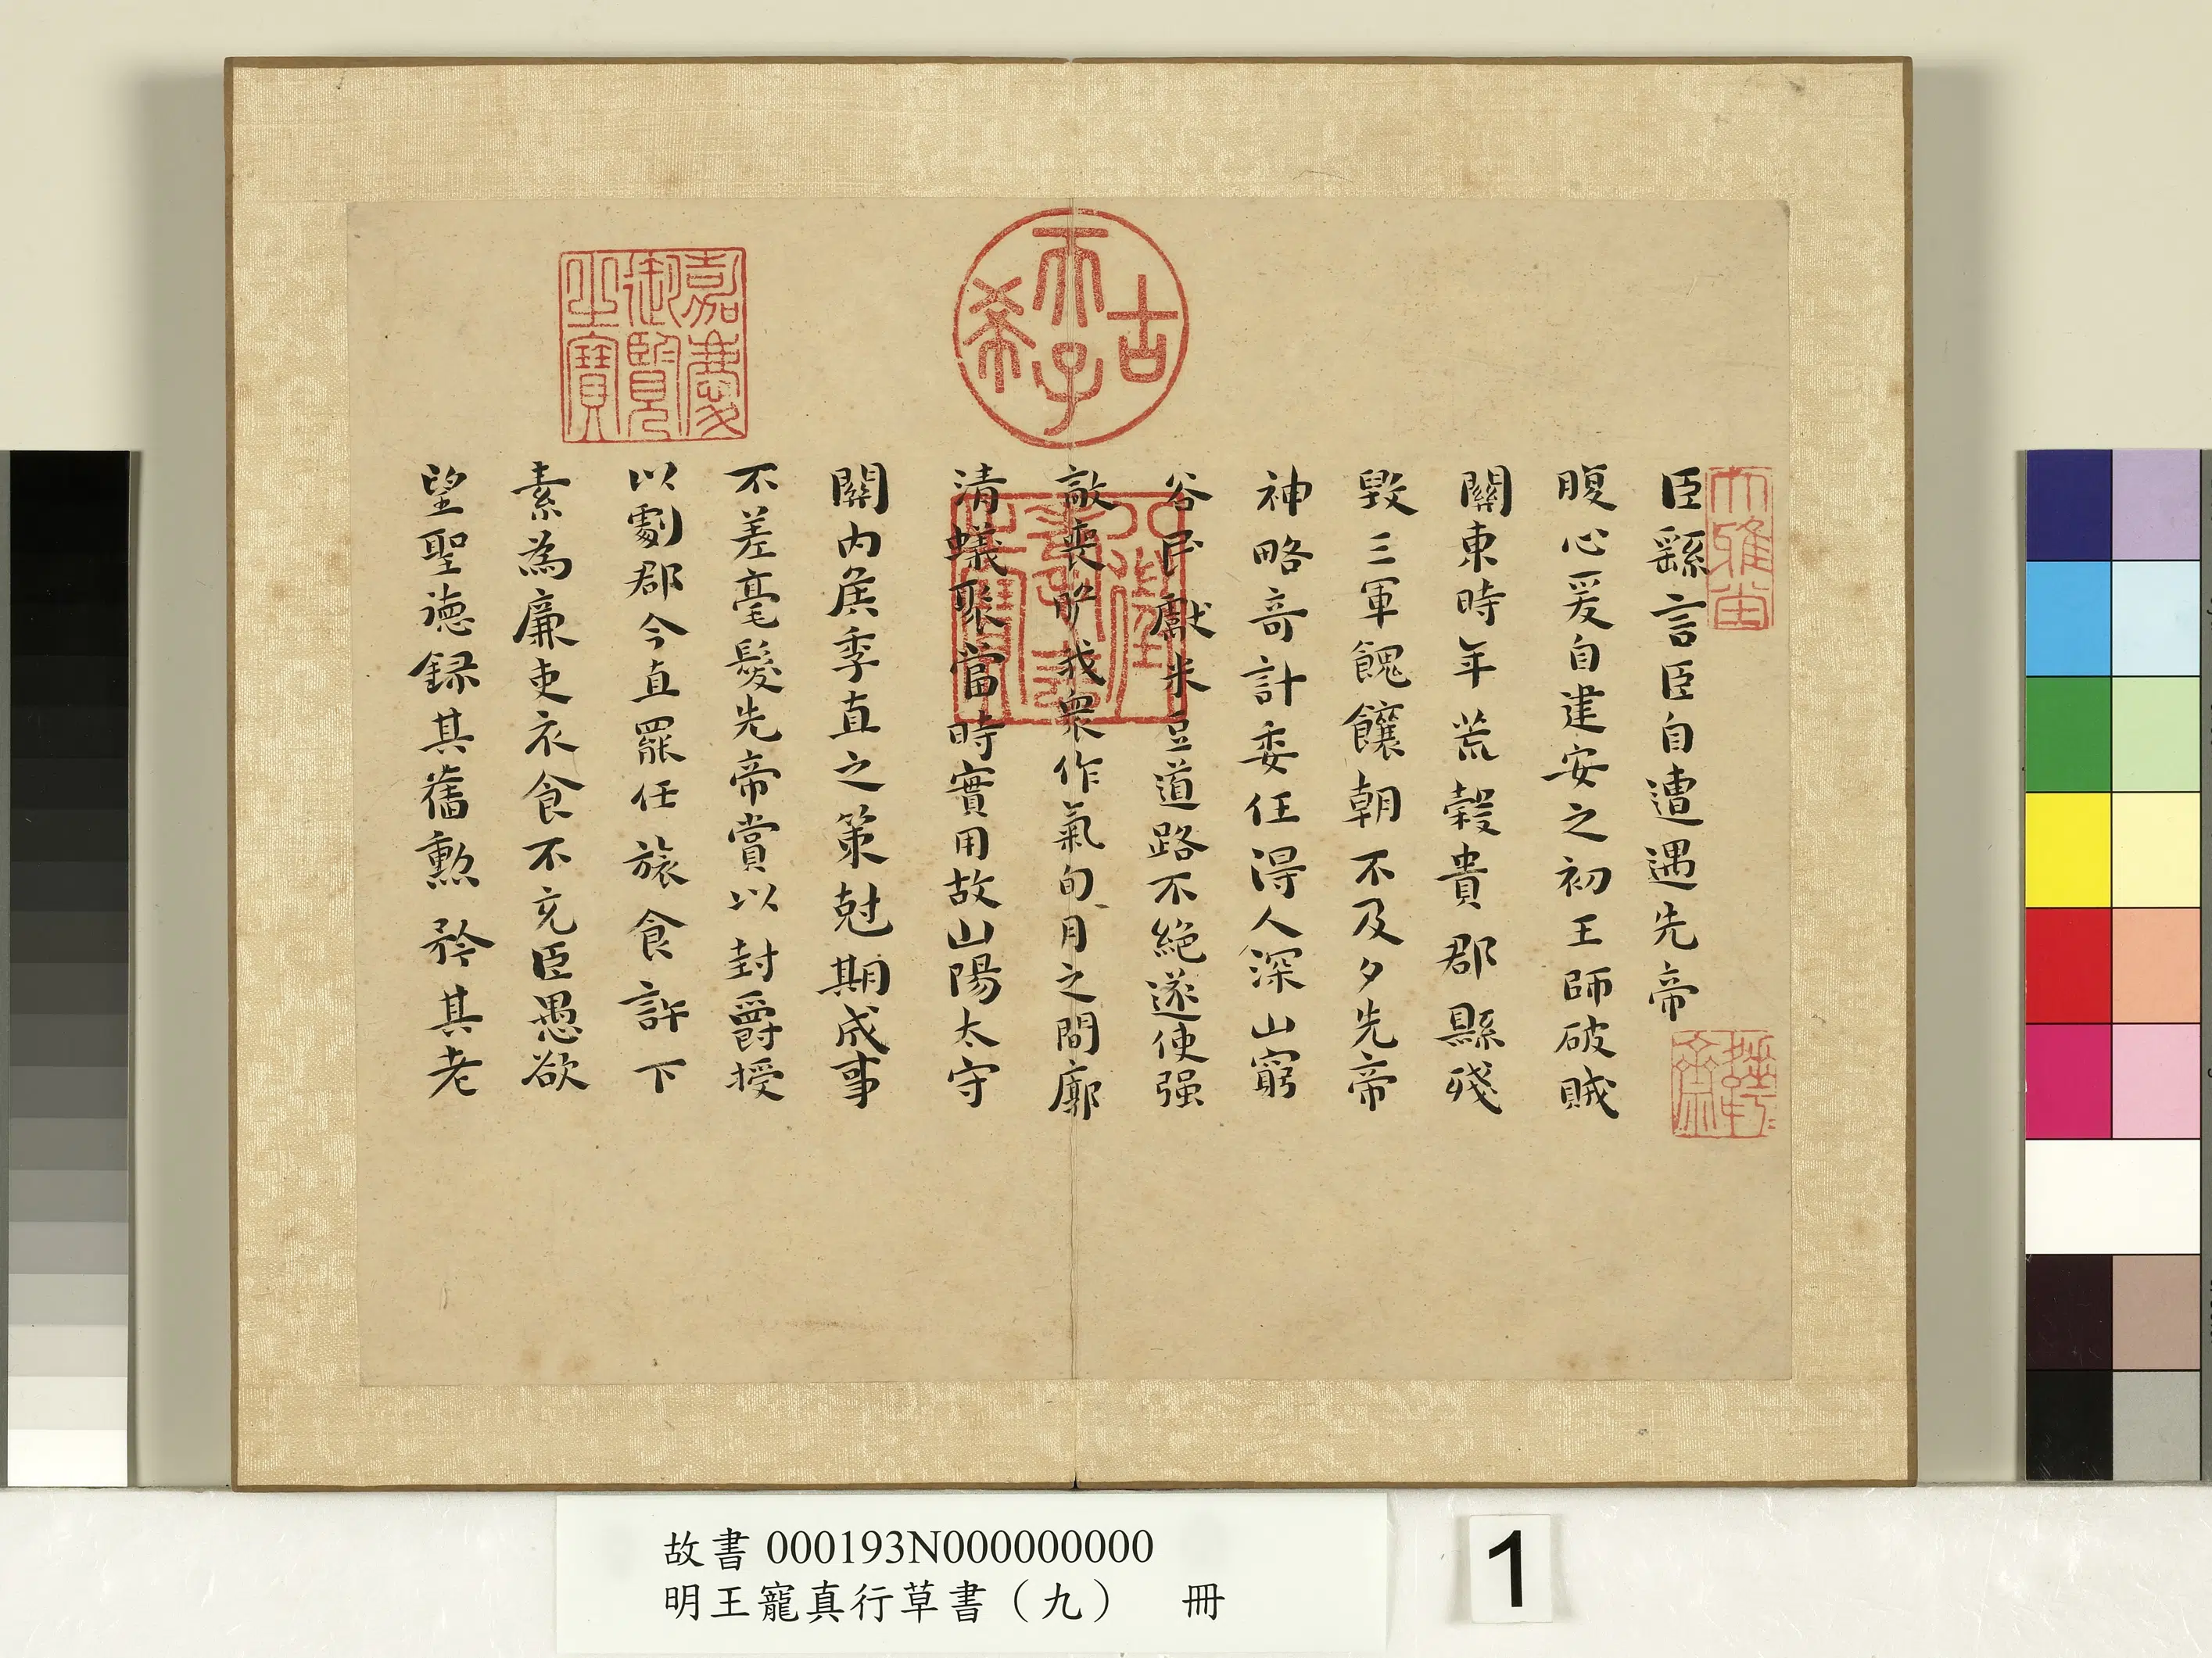 臣繇言臣自遭遇先帝
腹心爰自建安之初王師破賊
關東時年荒穀貴郡縣殘
毀三軍餽饟朝不及夕先帝
神略奇計委任得人深山窮
谷民獻米豆道路不絕遂使强
敵喪膽我衆作氣旬月之間廓
清蟻聚當時實用故山陽太守
關內侯季直之策尅期成事
不差毫髮先帝賞以封爵授
以劇郡今直罷任旅食許下
素為廉吏衣食不充臣愚欲
望聖德錄其舊勲矜其老
大雅堂
古希天子
八徵耄念之寶
嘉慶御覽之寶
故書 000193N000000000
明王寵真行草書（九） 冊
1